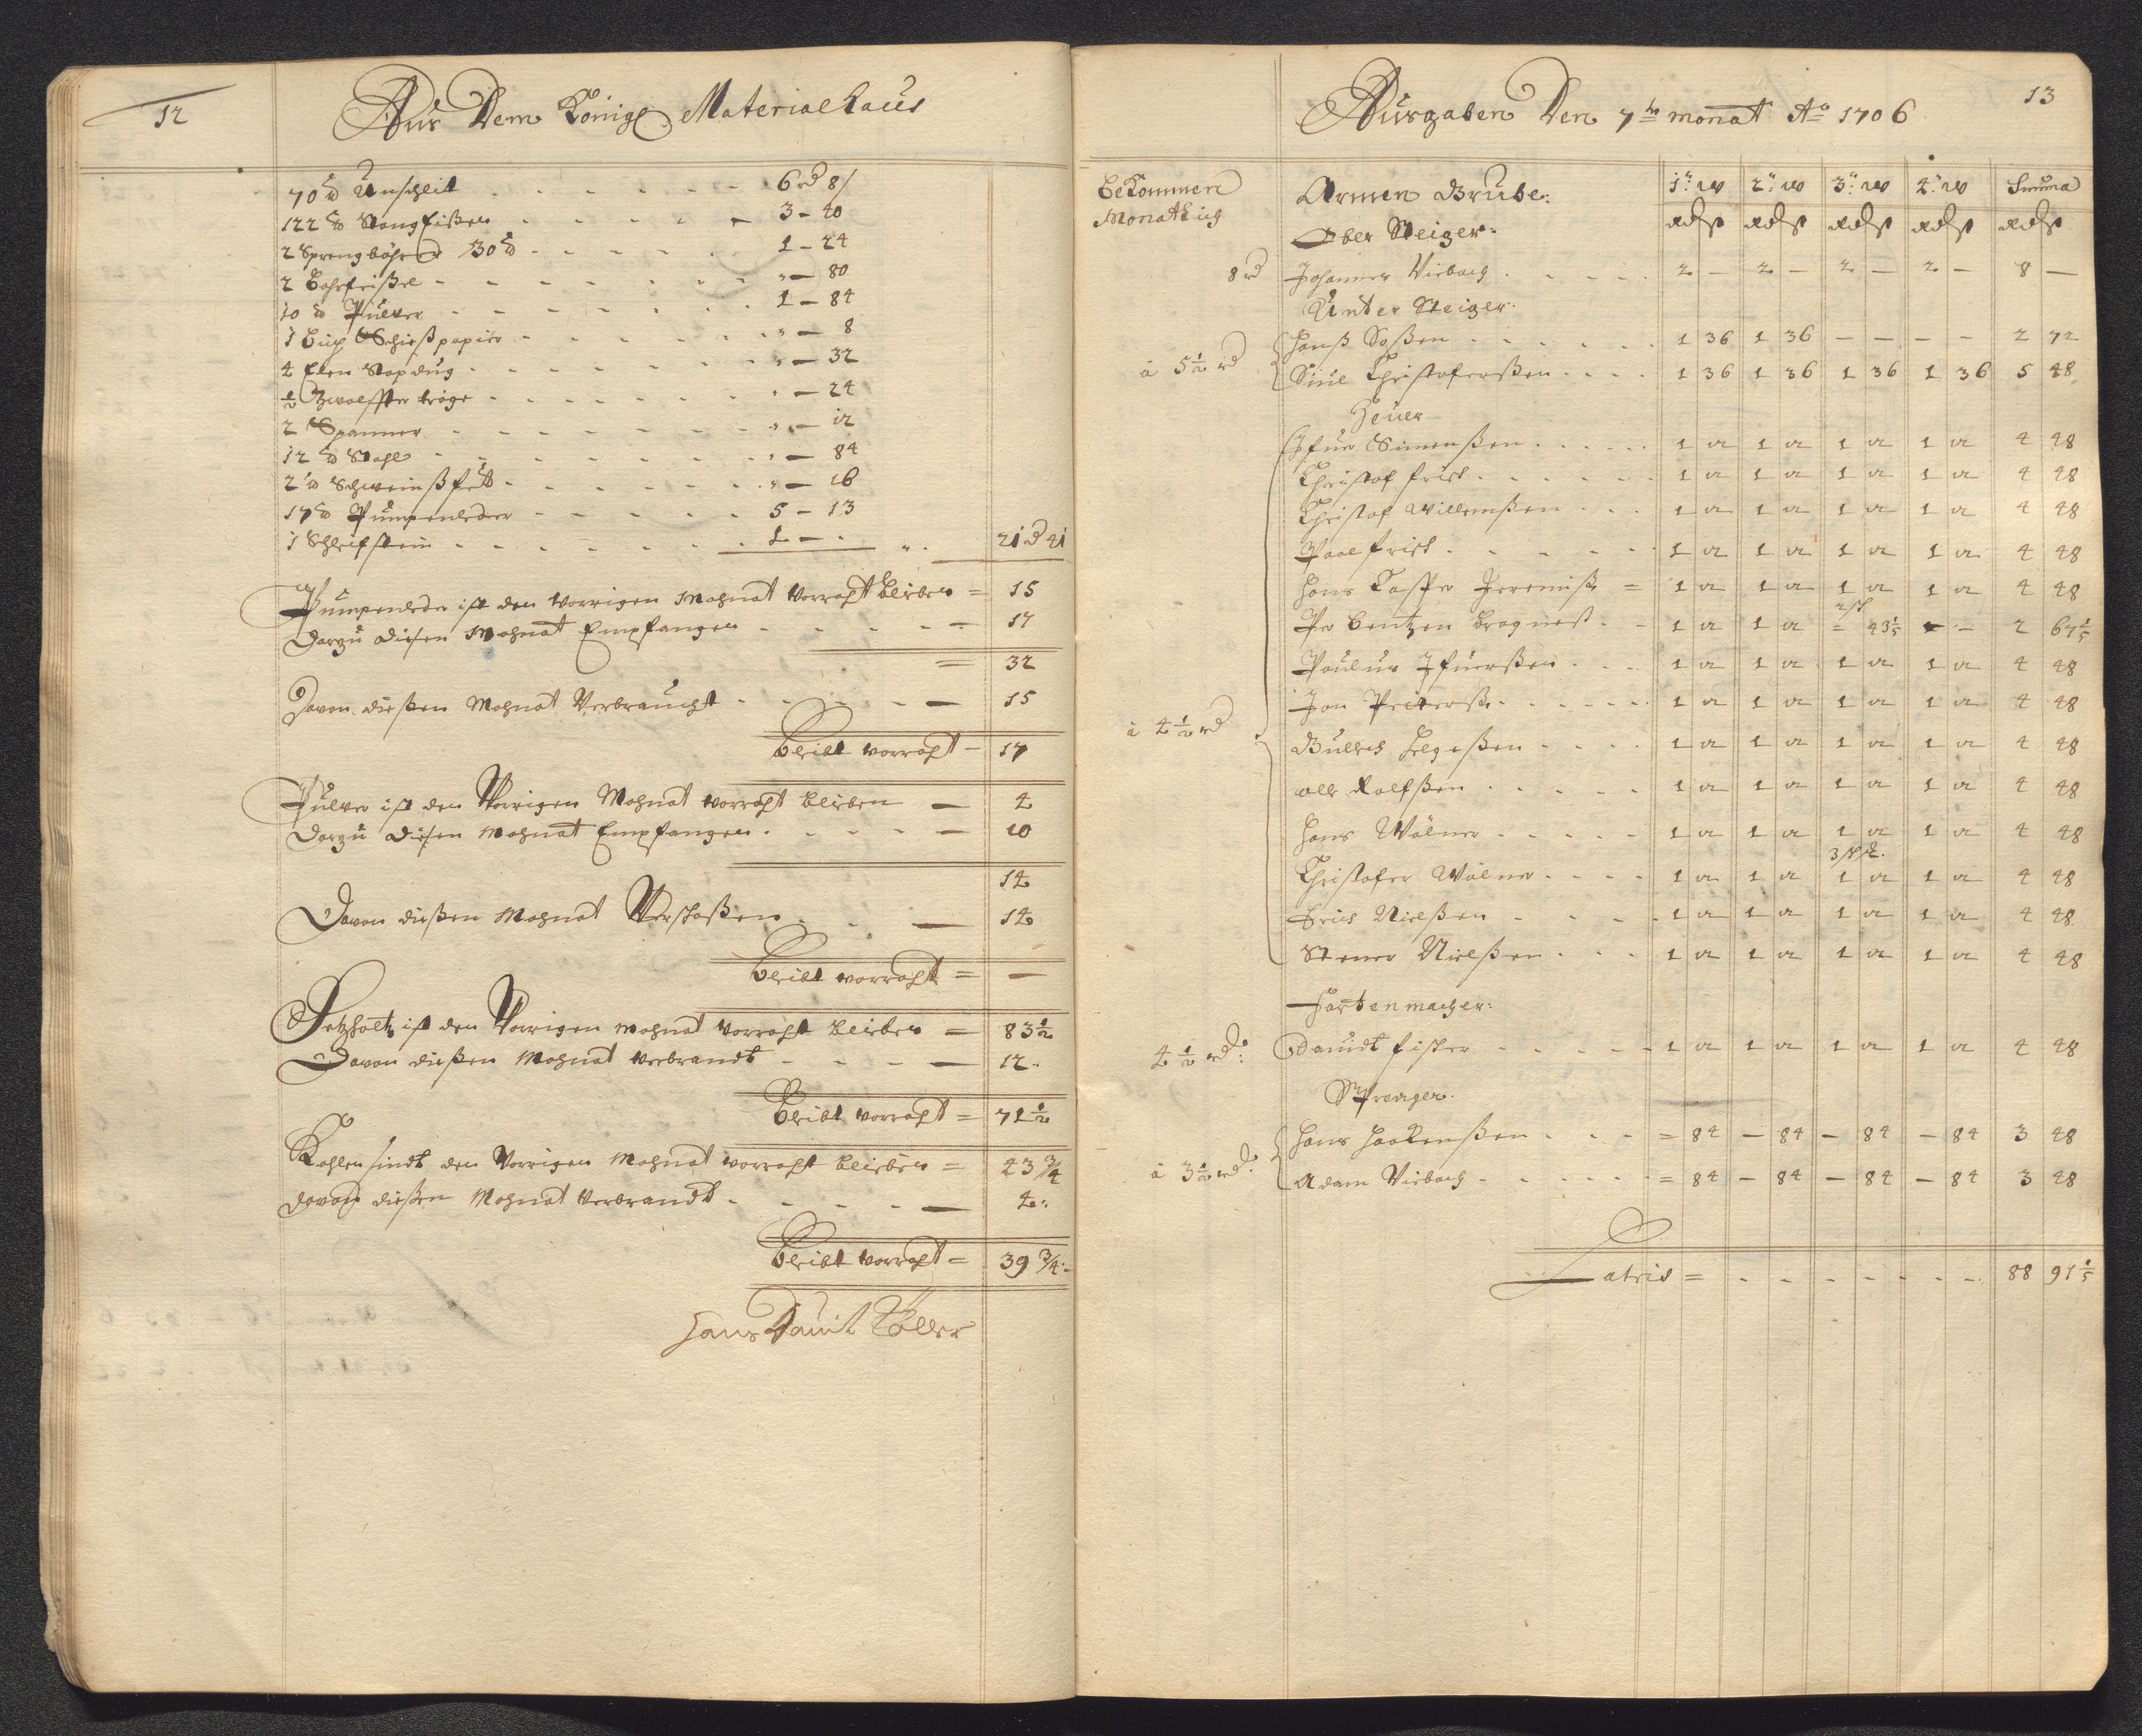 12
Aus Dem Königl Materialhaus
70 ℔ Unschlit - - - 6 rd 8 /
122 ℔ Stangeißen - - - 3 - 40
2 Sprengböhrer 30 ℔ - - - 1 - 24
2 - - - " - 80
10 ℔ Pulver - - - 1 - 84
1 Buch Schießpapier - - - " - 8
4 Elen - - - " - 32
½ Zwölffter tröge - - - " - 24
2 Spanner - - - " - 12
12 ℔ Stahl - - - " - 84
2 ℔ Schweinßfett - - - " - 16
17 ℔ Pumpenleder - - - 5 - 13
1 Schleifstein - - - 1 - " 21 rd 41
Pumpenleder ist den Vorrigen Mohnat Vorraht blieben = 15
Darzu diesen Mohnat Empfangen - - - 17
= 32
Davon dießen Mohnat Verbraucht - - - 15
bleibt vorraht - 17
Pulver ist den Vorrigen Mohnat vorraht blieben - 4
Darzu diesen Mohnat Empfangen - - - 10
14
Davon dießen Mohnat Verschoßen - - - 14
bleibt vorraht = -
Setzholtz ist den Vorrigen mohnat vorraht blieben = 83½
Davon dießen Mohnat verbrandt - - - 12 "
bleibt vorraht = 71½
Kohlen sindt den Vorrigen Mohnat vorraht blieben = 43¾
davon dießen Mohnat verbrandt - - - 4 "
bleibt vorraht = 39¾
Hans Davit Köller
13
Ausgaben Den 7te monat Ao 1706
bekommen Monatlich
Armen Grube: 1" w 2" w 3" w 4" w Summa
Ober Steiger: rd ß rd ß rd ß rd ß rd ß
8 rd Johannes Viebach - - - 2 - 2 - 2 - 2 - 8 -
Unter Steiger:
à 5½ rd
Hanß Soßen - - - 1 36 1 36 - - - - 2 72
Siul Christoferßen - - - 1 36 1 36 1 36 1 36 5 48
Heuer
à 4½ rd
Ifuer Simenßen - - - 1 12 1 12 1 12 1 12 4 48
Christof frick - - - 1 12 1 12 1 12 1 12 4 48
Christof Willemßen - - - 1 12 1 12 1 12 1 12 4 48
Paal frick - - - 1 12 1 12 1 12 1 12 4 48
Hans Casper Jeremiß = 1 12 1 12 1 12 1 12 4 48
2 sch
Per Bentzen Bragnes - - 1 12 1 12 = 43⅕ - - 2 67⅕
Paulus Ifuerßen - - - 1 12 1 12 1 12 1 12 4 48
Jan Peiterß - - - 1 12 1 12 1 12 1 12 4 48
Gullich Helgeßen - - - 1 12 1 12 1 12 1 12 4 48
Olle Rolfßen - - - 1 12 1 12 1 12 1 12 4 48
Hans Wölner - - - 1 12 1 12 1 12 1 12 4 48
3 sch
Christofer Wölner - - - 1 12 1 12 1 12 1 12 4 48
Eric Nielßen - - - 1 12 1 12 1 12 1 12 4 48
Stener Nielßen - - - 1 12 1 12 1 12 1 12 4 48
Hartenmacher:
4½ rd: Davidt fister - - - 1 12 1 12 1 12 1 12 4 48
à 3½ rd:
Hans Haakenßen - - - = 84 - 84 - 84 - 84 3 48
Adam Viebach - - - = 84 - 84 - 84 - 84 3 48
Lateris = - - - 88 91⅕